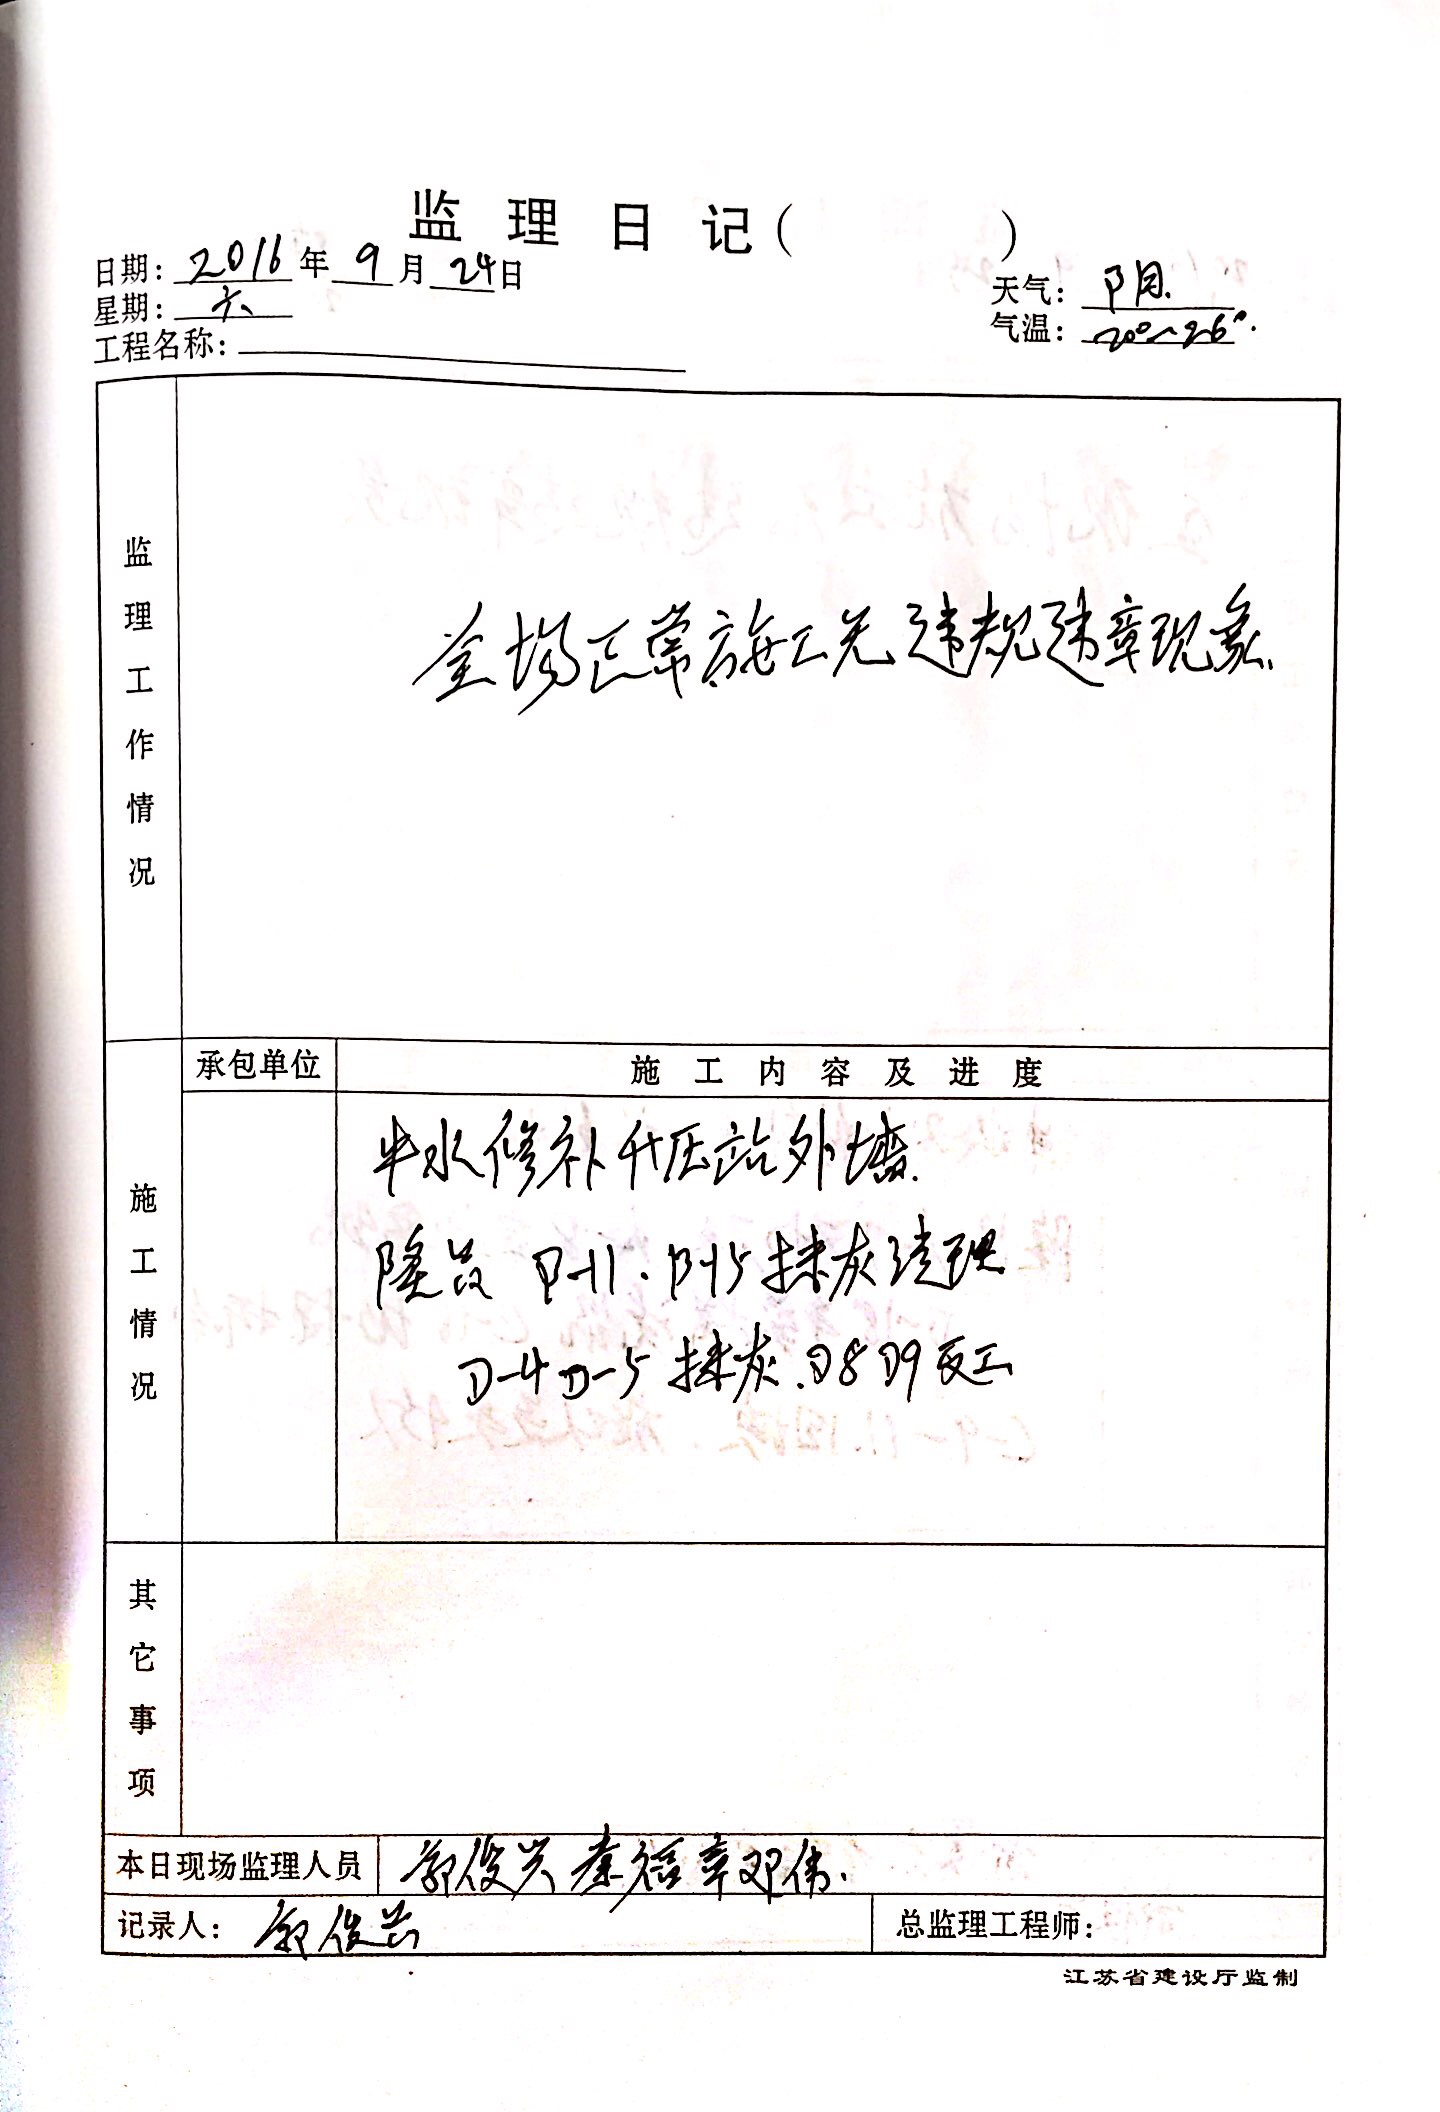 监理日记( )
日期：2016年9月24日
星期：六
天气：阴.
工程名称：
气温：20°~26°.
监理工作情况
全场正常施工无违规违章现象.
承包单位
施工内容及进度
施工情况
半水修补升压站外墙.
隆昌 D-11. D-15抹灰清理
D-4 D-5 抹灰. D8 D9 反工
其它事项
本日现场监理人员
郭俊兴 秦福章 邓伟.
记录人：郭俊兴
总监理工程师：
江苏省建设厅监制